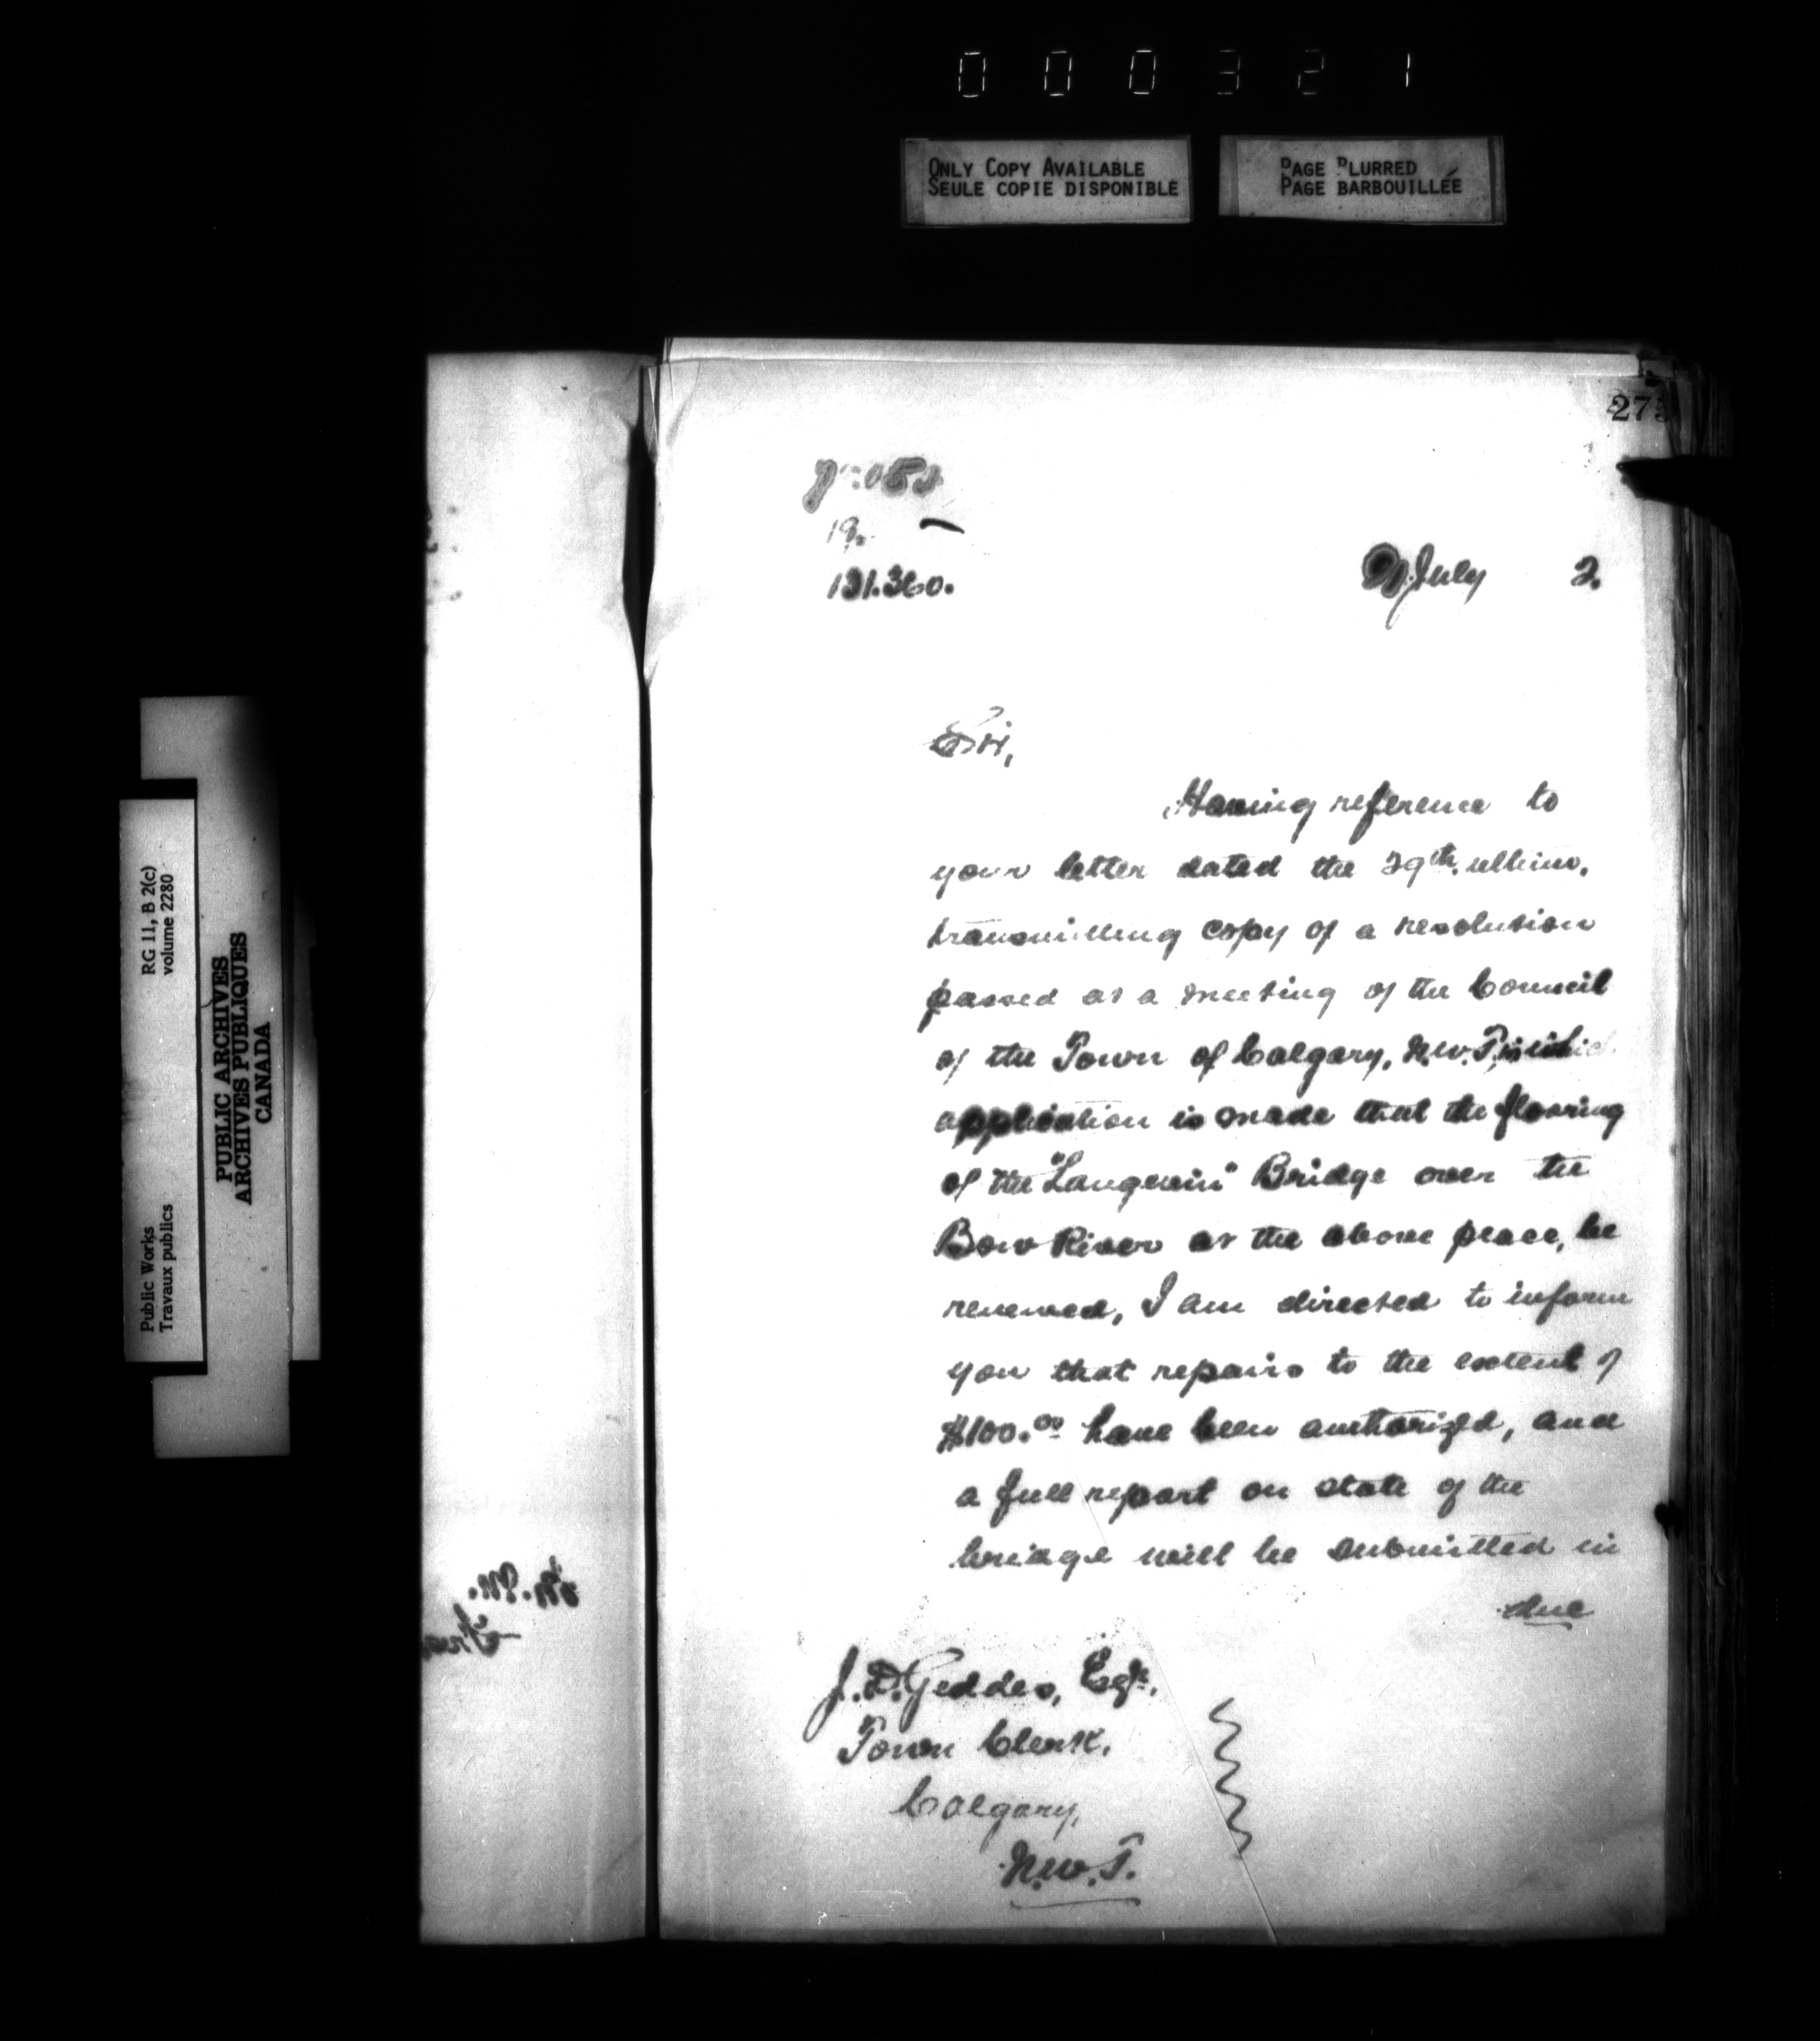 000321
ONLY COPY AVAILABLE
SEULE COPIE DISPONIBLE
PAGE BLURRED
PAGE BARBOUILLÉE
RG 11, B 2(c)
volume 2280
PUBLIC ARCHIVES
ARCHIVES PUBLIQUES
CANADA
Public Works
Travaux publics
27
131.360.
July 2.
Sir,
Having reference to
your letter dated the 29th. ultimo,
transmitting copy of a resolution
passed at a meeting of the Council
of the Town of Calgary, N.W.T, in which
application is made that the flooring
of the "Langevin" Bridge over the
Bow River at the above place, be
renewed, I am directed to inform
you that repairs to the extent of
$100.00 have been authorized, and
a full report on state of the
bridge will be submitted in
due
J. D. Geddes, Esqr.,
Town Clerk,
Calgary,
N.W.T.